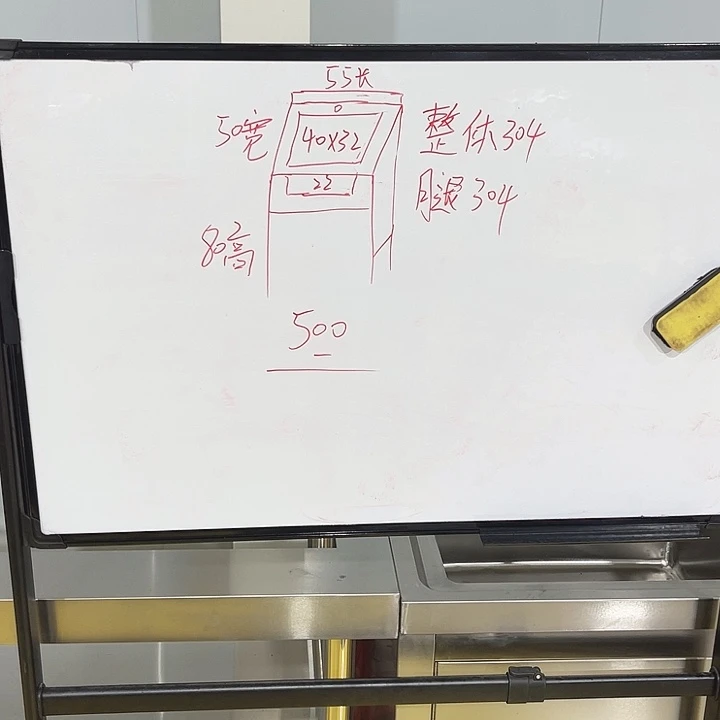 55长
50宽
40x32
整体304
22
腿304
80高
500